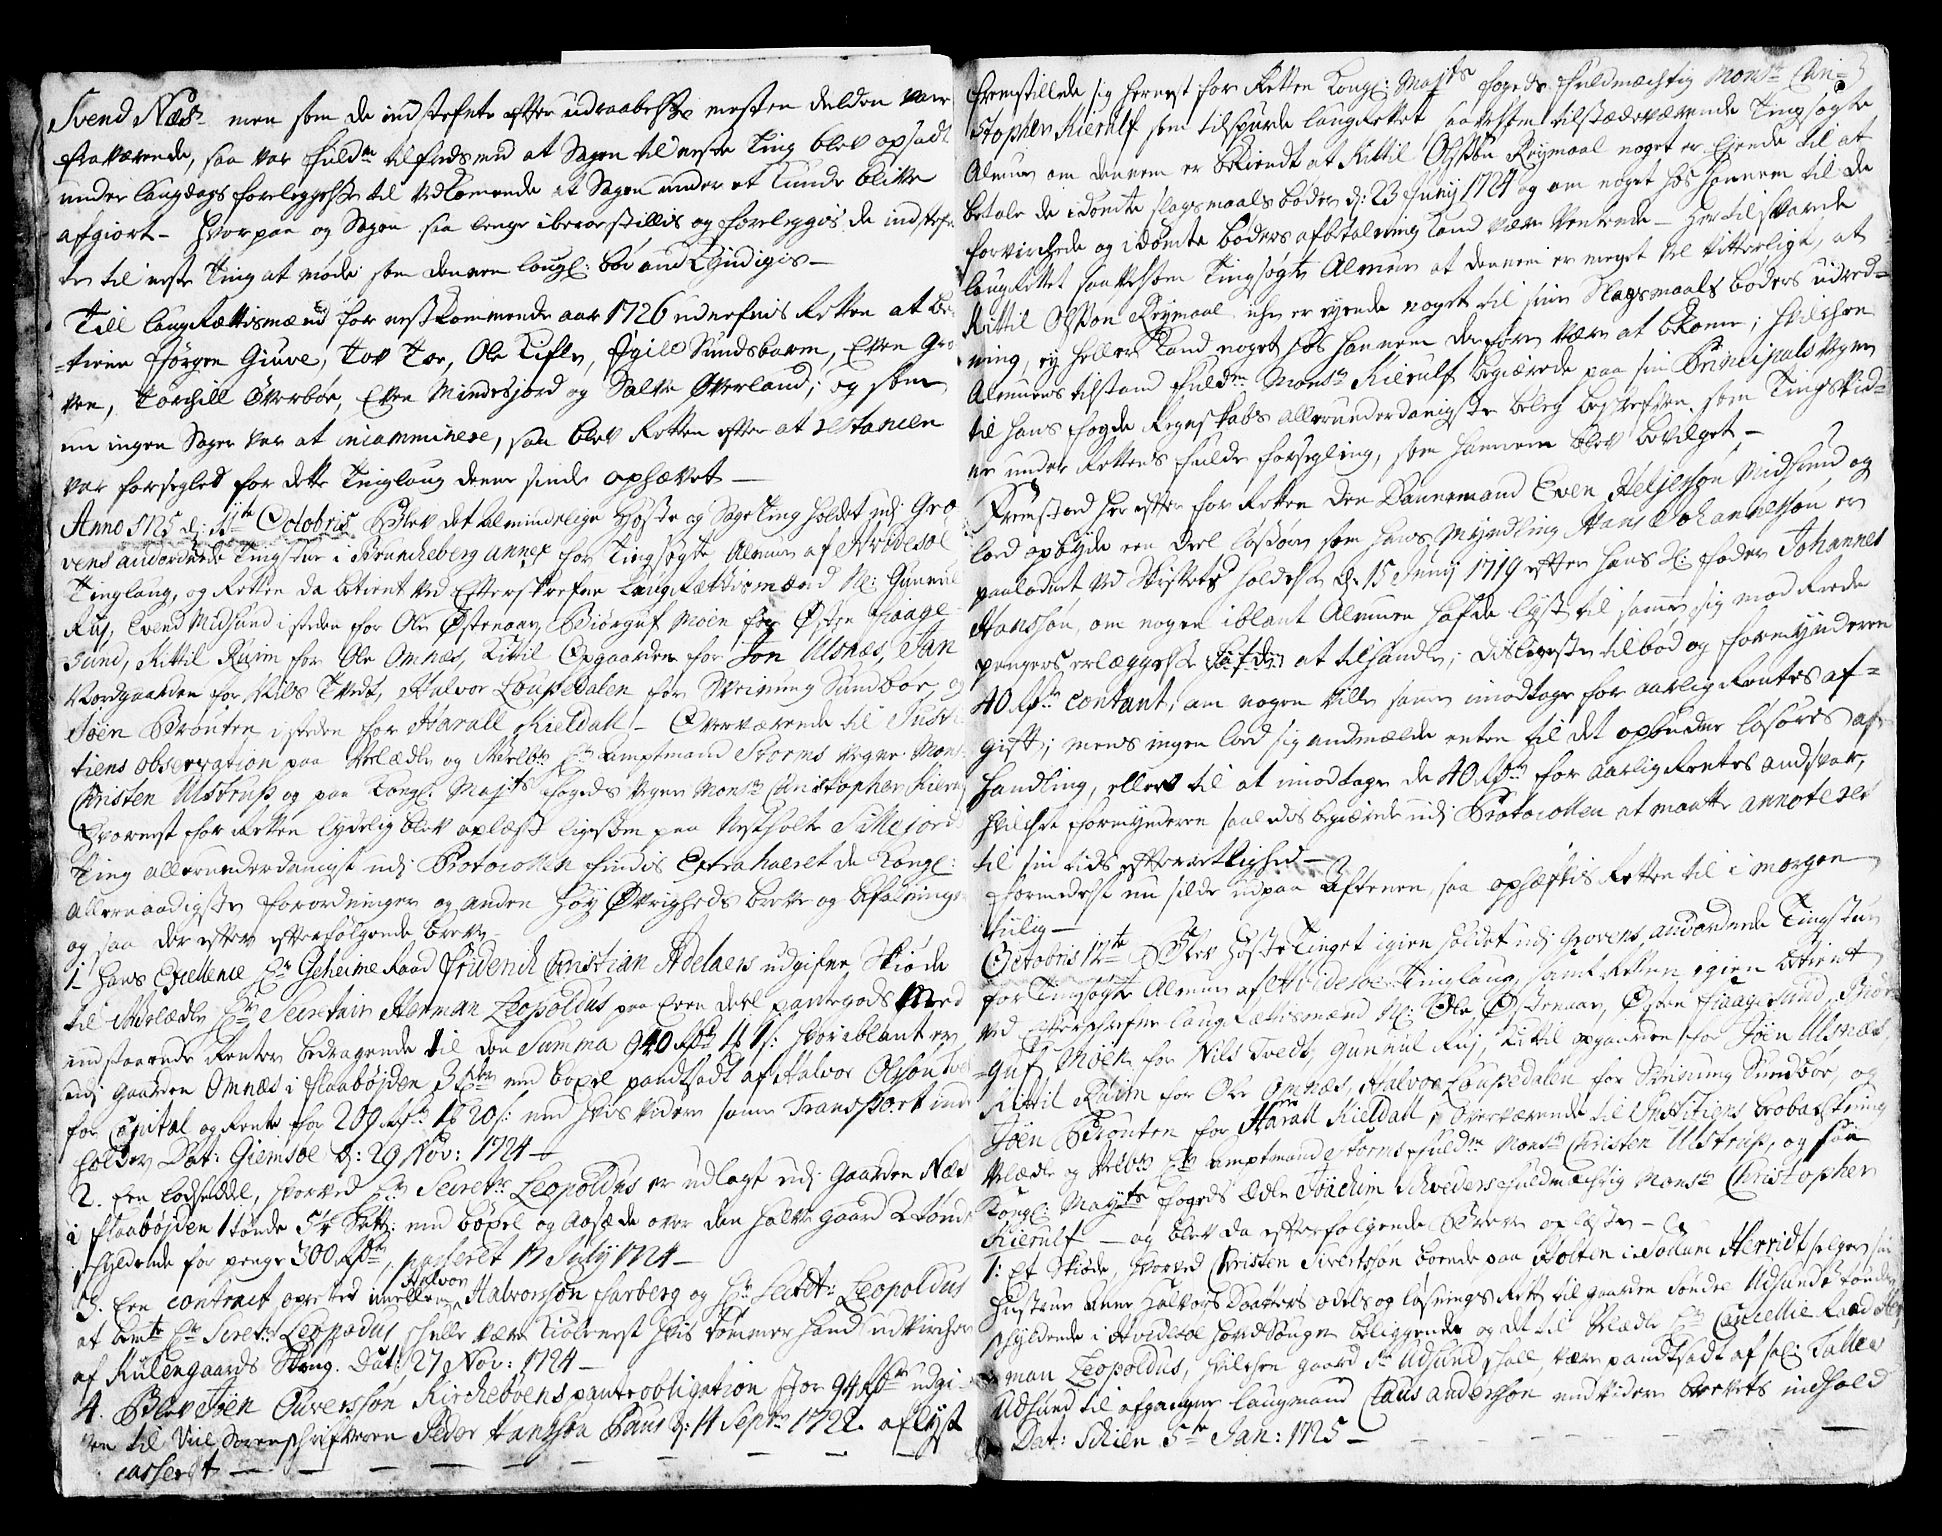 Svend Næs – men som de indstefnte efter udraabelse mesten deelen var
fraværende, saa var fuldm tilfreds med at Sagen til neste Ting blev opsadt
under laugdags foreleggelse til vedkomende at Sagen under et kunde blive
afgiort – Hvorpaa og Sagen saa lenge i beroe stillis og foreleggis de indstefn
te til neste Ting at møde som dennem lougl: bør and kyndigis –
Till laug Rættismænd for nestkommende aar 1726 udnefnis Retten at be
tiene Jørgen Giuve, Tov Toe, Ole Kifle, Ægill Sundsbarm, Even Gro
ven, Torchill Øverbøe, Even Mindesjord og Salve Øverland; og som
nu ingen Sager var at incamminere, saa blev Retten efter at restancen
var forseglet for dette Tinglaug denne sinde ophævet –
Anno 1725 d: 11te Octobris Blev det almindelige Høste og Sage Ting holdet udj Gro
vens anordnede Tingstue i Brunckeberg annex for Tingsøgte Almue af Hvidesøe
Tinglaug, og Retten da betient ved Efterskrefne Laug Rættismænd Nl: Gunnul
Ruj, Evend Midsund i steden for Ole Østenaae, Biørguf Moen for Østen Haage
sund, Kittil Ruim for Ole Omnæs, Kittil Opgaarden for Jon Ulsnæs, Jan
Nordgaarden for Nils Tvedt, Halvor Loupedalen for Steinung Sundboe, og
Jøen Brouten i steden for Harall Kieldall – Overværende til Justi
tiens observation paa Velædle og Velb Hr amptmand Storms vegne Mons
Christen Ulstrup og paa Kongl: Majts fogeds vegne Mons Christopher Kierulf
Hvornest for Retten lydelig blev oplæst ligesom paa Nestholte Sillejords
Ting allerunderdanigst udj Protocollen findis Extraheret de Kongl:
allernaadigste forordninger og anden Høy Øvrigheds breve og befalninge
og saa der efter efterfølgende breve –
1. Hans Excellence Hr Geheime Raad Friderich Christian Adelaers udgifne Skiøde
til Velædle Hr Secretair Herman Leopoldus paa Een deel pantegods Med
indstaaende Renter bedragende til den Summa 940 Rdr 1 # 1 s: hvoriblant er
udj gaarden Omnæs i flaabøjden 3 med bøxel pandtsadt af Halvor Olsøn
for Capital og Rente for 209 Rdr 1 # 20 s: med hvis videre samme Transport inde
holder Dat: Giemsøe d: 29 Nov: 1724 –
2. Een lodseddel, hvorved Hr Secret: Leopoldus er udlagt udj gaarden Næs
i flaabøjden 1 tønde 5¼ Sett: med bøxel og Aasæde over den halve gaard 2 tønde
skyldende for penge 300 Rdr, passeret 17 July 1724 –
3. Een contract opretted imellem Halvor Halvorssøn farberg og Hr Secret: Leopoldus
at bemte Hr Secret: Leopoldus skulle være kiøbernest hvis tømmer hand udvircher
af Kulengaards Skoug. Dat: 27 Nov: 1724 –
4. Blev Jøen Ouverssøn Kirckebøens panteobligation for 94 Rdr udgi
ven til Viil Sorenskrifveren Peder Hanssøn Paus d: 11 Septr 1722. aflyst
casseret –
fremstillede sig hernest for Retten Kongl: Majts fogeds fuldmæchtig Mons Chri
stopher Kierulf som tilspurde laugRettet saavelsom tilstædeværende Tingsøgte
Almue om dennem er bekiendt at Kittil Olssøn Reymaal noget er ejende til at
betale de idømte slagsmaals bøder d: 23 Junij 1724 og om noget hos hannem til de
forvirchede og idømte bøders afbetalning kand være ventende – Hertil svarede
laugRettet saavelsom Tingsøgte Almue at dennem er meget vel vitterligt, at
Kittil Olssøn Reymaal icke er ejende noget til sine Slagsmaals bøders udred
ning, ey heller kand noget hos hannem derfore være at bekome; Hvilchen
Almuens tilstand fuldm Mons Kierulf begiærede paa sin Principals vegne
til hans fogde Regnskabs allerunderdanigste beleg beskreven som Tingsvid
ne under Rettens fulde forsegling, som hannem blev bevilget –
Fremstoed her efter for Retten den Dannemand Even Heljessøn Midsund og
loed opbyde een deel løsøre som hans Myndling Hans Johannessøn er
paalodnet ved Skiftets holdelse d: 15 Junij 1719 efter hans Sl: fader Johannes
Hanssøn, om nogen iblant Almuen hafde lyst til samme sig mod Rede
pengers erlæggelse hafde at tilhandle; Disligeste tilbød og formynderen
40 Rdr contant, om nogen ville samme imodtage for aarlig Rentes af
gift; mens ingen loed sig andmælde enten til det opbudne løsøres af
handling, eller til at imodtage de 40 Rdr for aarlig Rentes andsvar,
Hvilchet formynderen saaledes begiærede udj Protocollen at maatte annoteres
til sin tids efterretlighed –
formedelst nu silde udpaa Aftenen, saa ophæftis Retten til i morgen
tilig –
Octobris 12te Blev Høste Tinget igien holdet udj Grovens anordnede Tingstue
for Tingsøgte Almue af Hvidesøe Tinglaug, samt Retten igien betient
ved Efterskrefne laug Rættismænd Nl: Ole Østenaae, Østen Haagesund, Biør
guf Moen for Nils Tvedt, Gunnul Ruj, Kittil opgaarden for Jøen Ulsnæs,
Kittil Ruim for Ole Omnæs, Halvor Loupedalen for Steinung Sundboe, og
Jøen Brouten for Harall Kieldall, Overværende til Justitiens beobachtning
Velædle og Velb Hr amptmand Storms fuldm Mons Christen Ulstrup, og paa
Kongl: Mayts fogeds Ædle Joachim Schweders fuldmæchtig Mons Christopher
Kierulf – og blev da efterfølgende Breve oplæste –
1: Et Skiøde, hvorved Christen Sivertssøn boende paa Holten i Solum Herridt sælger sin
Hustrue Anne Halvors Daatters odels og løsnings Rett til gaarden Søndre Udsund 5 tønder
skyldende i Hvidesøe Hoved Sougn beliggende og det til Velædle Hr Cancellie Raad Her
man Leopoldus, hvilchen gaard Sr Udsund skall være pandtsadt af sal: Talleu
Udsund til afgangne laugmand Claus Anderssøn med videre brevets indhold
Dat: Schien 5te Jan: 1725 –